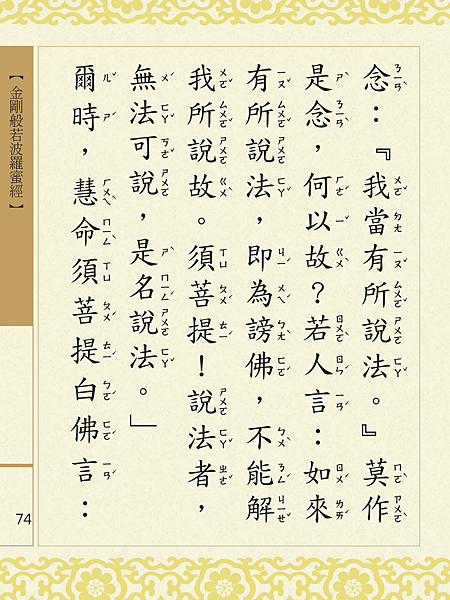 念：『我當有所說法。』莫作
是念，何以故？若人言：如來
有所說法，即為謗佛，不能解
我所說故。須菩提！說法者，
無法可說，是名說法。」
爾時，慧命須菩提白佛言：
【金剛般若波羅蜜經】
74